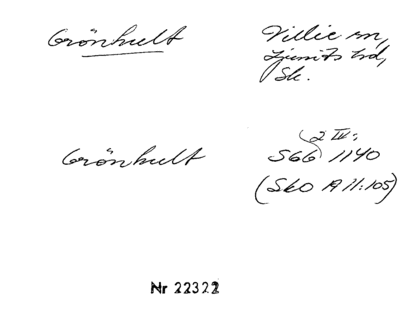 Grönhult
Villie sn,
Ljunits hd,
Sk.
Grönhult
2 IV:
S66 1140
(Sko A II:105)
Nr 22322